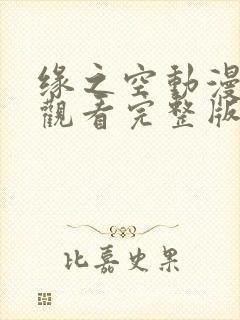 緣之空動漫
觀看完整版
比嘉史果